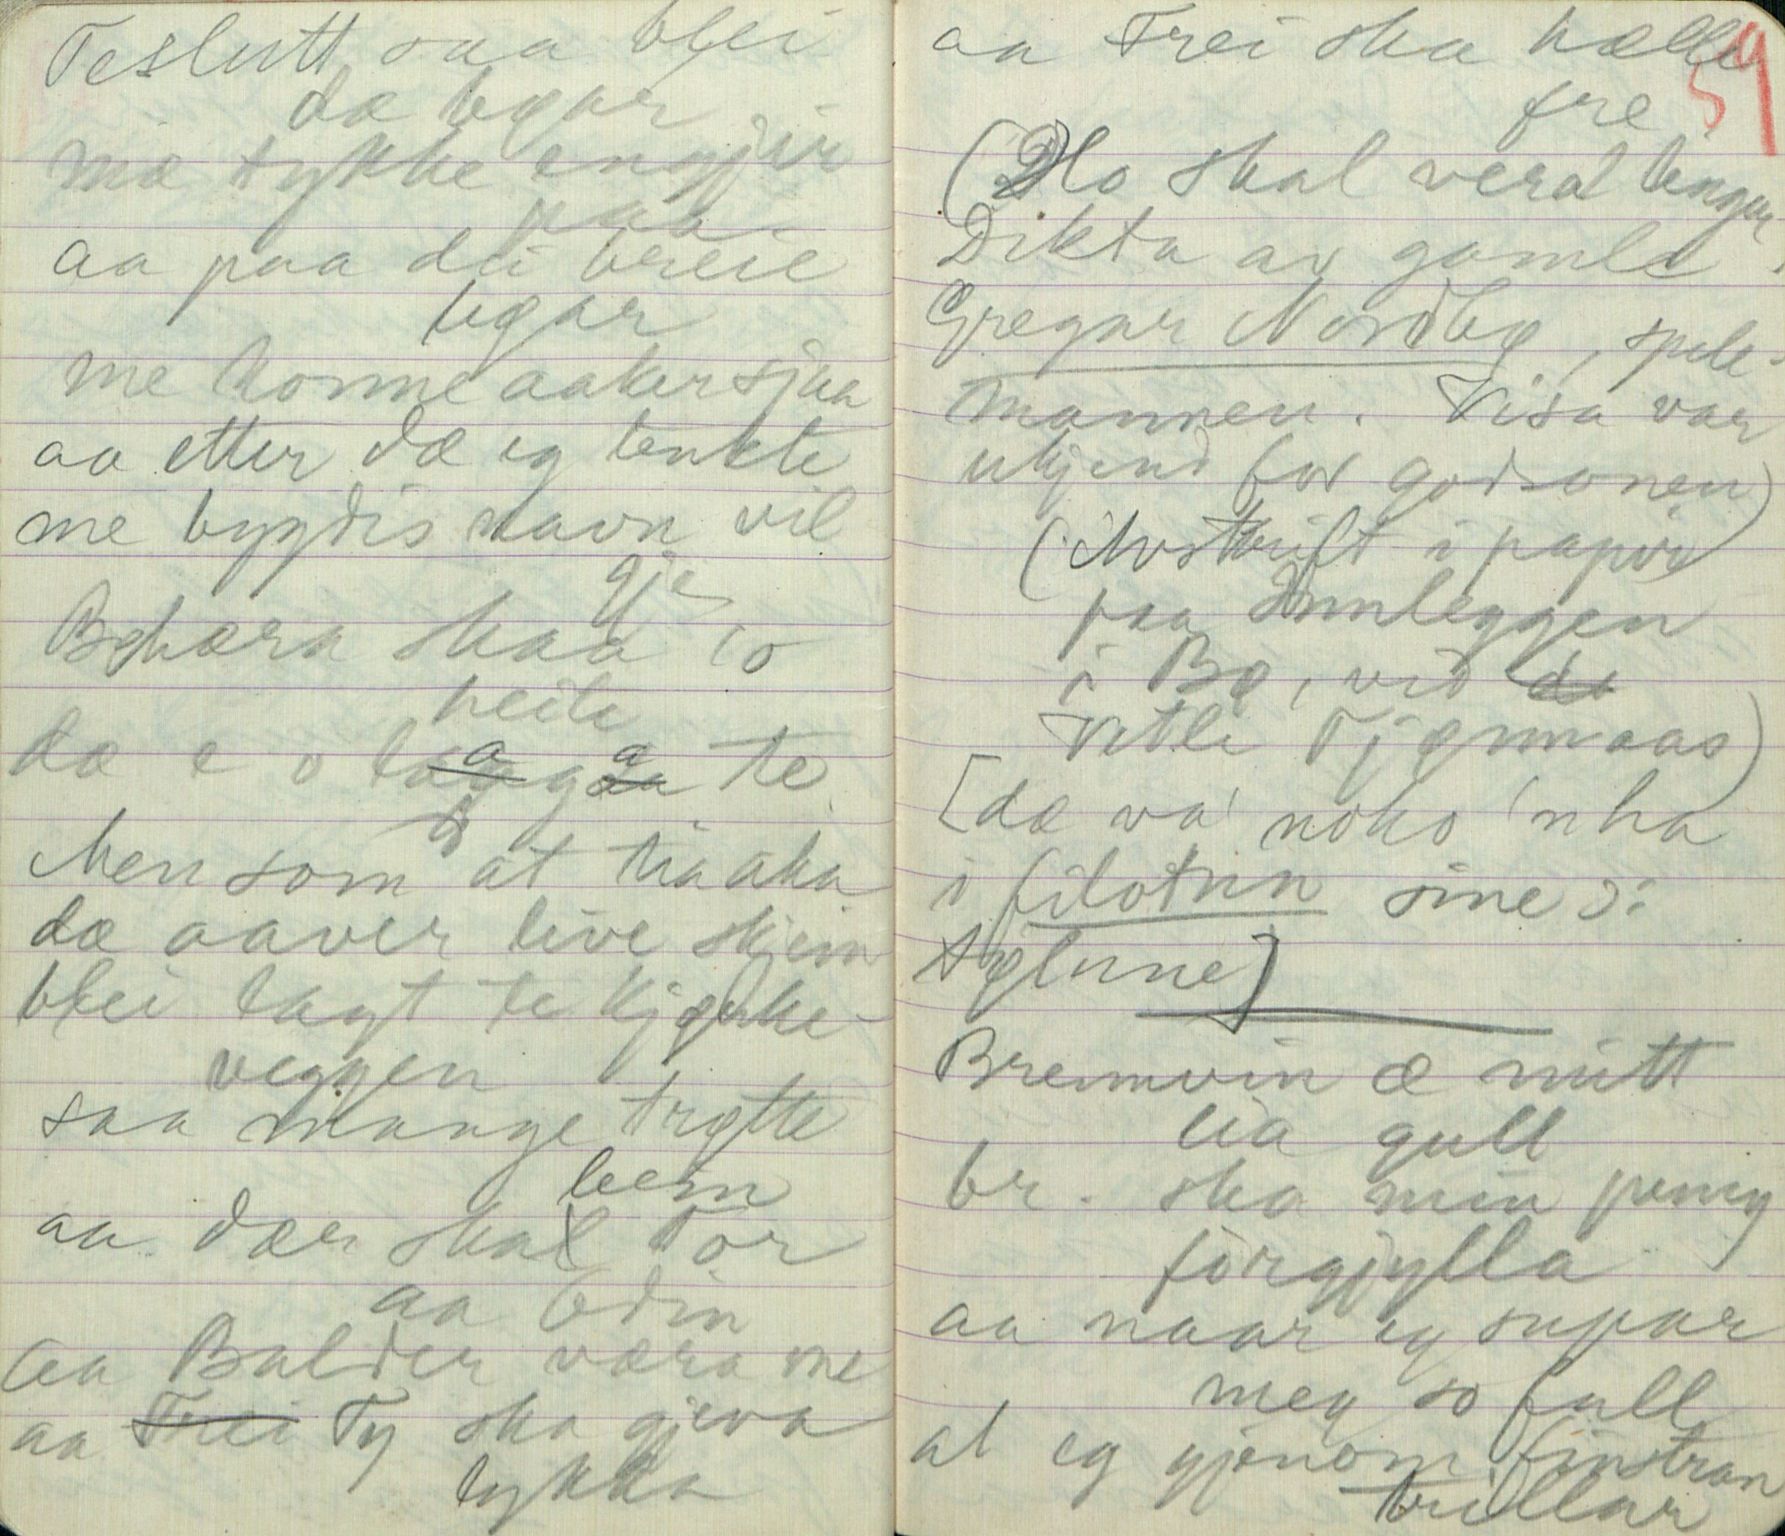 Teslutt saa blei
dæ bgar
mæ tykke engjir
paa
aa paa dei breie
bgar
me konne aaker sjaa
aa etter dæ eg tenkte
me bygdis navn vil
gje
Bøhæra skaa 'o
heite
dæ e o lagga te
Men som at tia aka
dæ aaver live skjein
blei lagt te kjørke-
veggen
saa mange trøtte
bein
aa dær skal Tor
aa Odin
aa Balder væra me
aa Frei Ty ska gjeva
lykka
aa Frei ska hælle
fre
59
(Ho skal vera lenger,
Dikta av gamle
Gregar Nordbø, spele-
mannen. Visa var
ukjend for godsonen)
(Avskrift i papir
paa Annleggen
i Bø, vid de
Vetle Tjønnaas)
[dæ va' noko 'n ha
i filotrin sine ɔ:
tølune]
Brennvin æ mitt
lia gull
br. ska min peng
forgjylla
aa naar eg supar
meg so full
at eg gjenom finstran
trillar